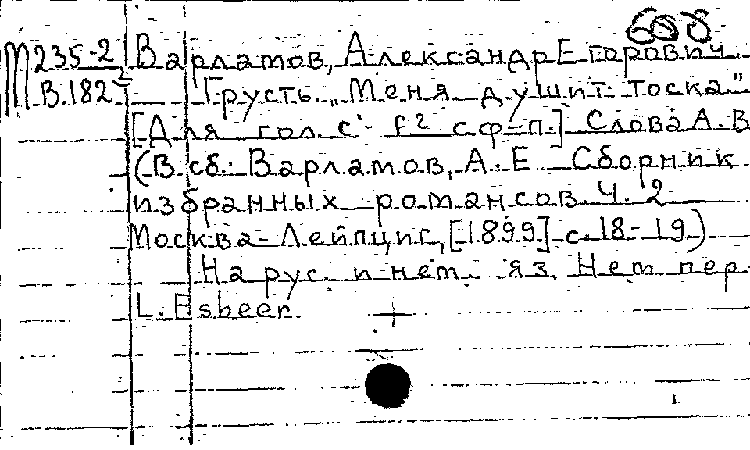 608
М235-2 Варламов, Александр Егорович.
В.182 Грусть. „Меня душит тоска"
[Для гол. с f² с ф-п.] Слова А.В
(В сб: Варламов, А.Е. Сборник
избранных романсов Ч. 2
Москва-Лейпциг, [1899] с. 18-19)
На рус. и нем. яз. Нем пер
L. Esbeer.